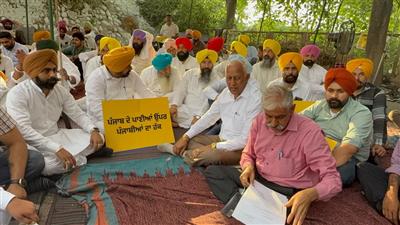 ਪੰਜਾਬ ਦੇ ਪਾਣੀਆਂ ਉਪਰ
ਪੰਜਾਬੀਆਂ ਦਾ ਹੱਕ